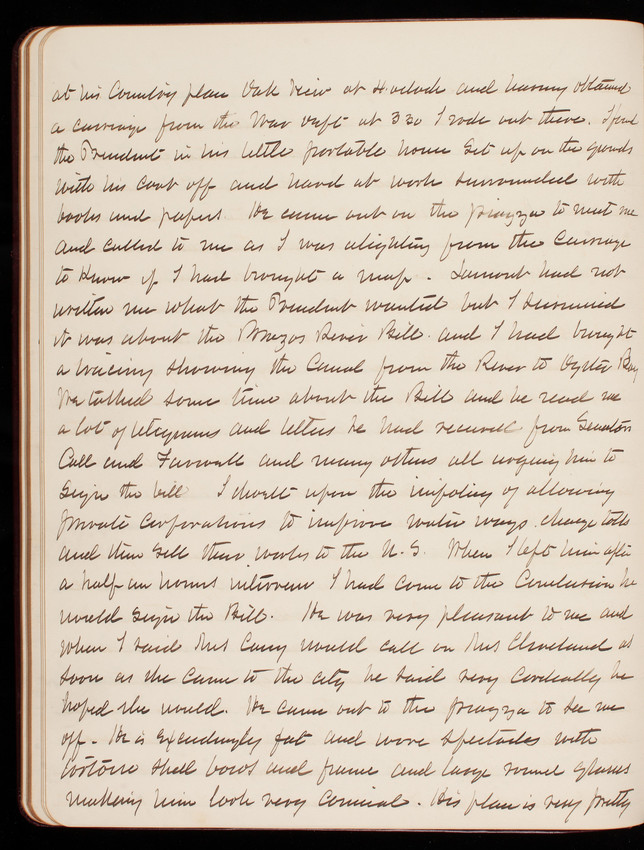 at his Country place Oak View at 4 oclock and having obtained
a carriage from the War Dept at 330 I rode out there. I found
the President in his little portable house set up on the grounds
with his coat off and hard at work surrounded with
books and papers. He came out on the piazza to meet me
and called to me as I was alighting from the carriage
to know if I had brought a map. Lamont had not
written me what the President wanted but I surmised
it was about the Brazos River Bill and I had brought
a tracing showing the Canal from the River to Oyster Bay
We talked some time about the Bill and he read me
a lot of telegrams and letters he had received from Senators
Call and Farwell and many others all urging him to
sign the bill I dwelt upon the impolicy of allowing
private corporations to improve water ways charge tolls
and then sell their works to the U.S. When I left him after
a half an hours interview I had come to the Conclusion he
would sign the Bill. He was very pleasant to me and
when I said Mrs Casey would call on Mrs Cleveland as
soon as she came to the city he said very cordially he
hoped she would. He came out to the piazza to see me
off. He is exceedingly fat and wore spectacles with
tortoise shell bows and frame and large round glasses
making him look very comical. His place is very pretty